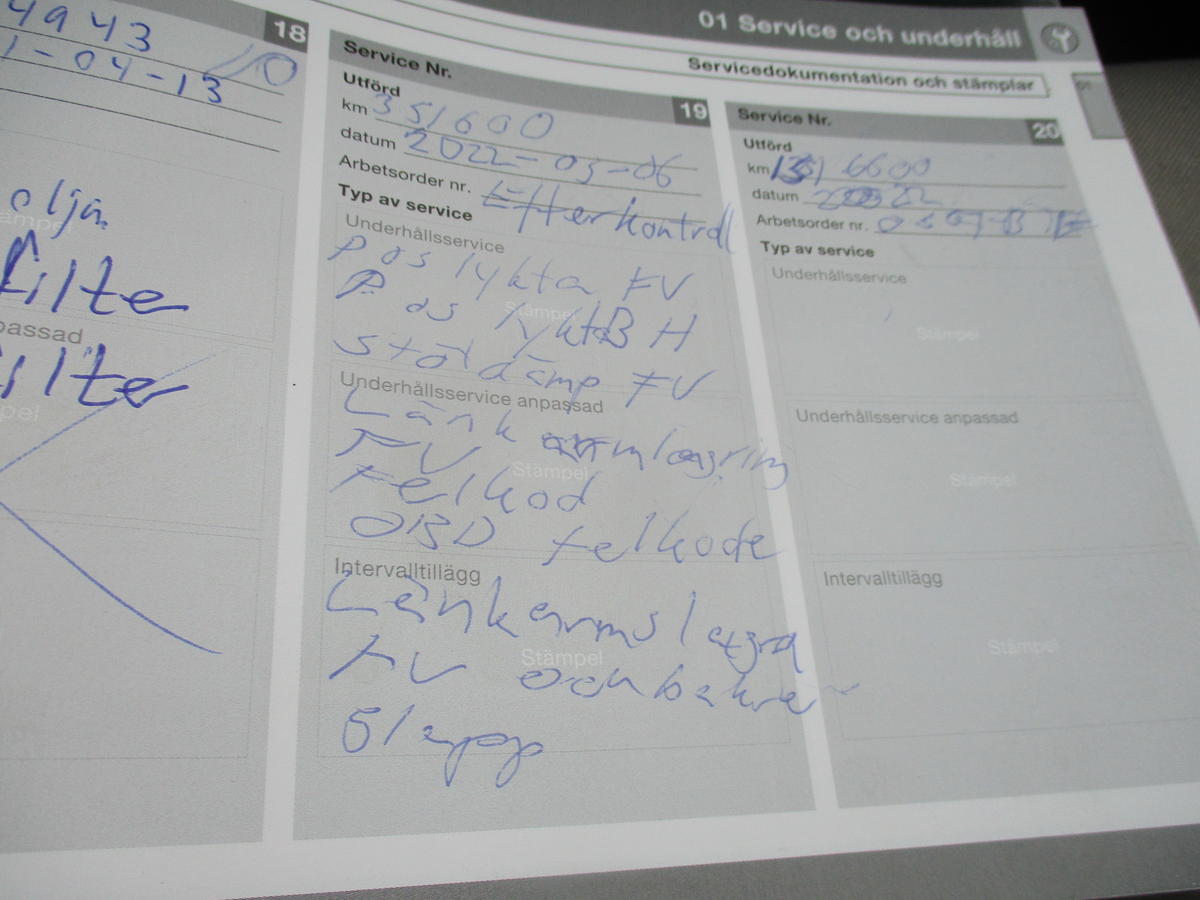 01 Service och underhåll
Servicedokumentation och stämplar
01
18
4943
1-04-13
olja
Stämpel
filter
passad
filter
Service Nr. 19
Utförd
km 351600
datum 2022-05-06
Arbetsorder nr. Efterkontroll
Typ av service
Underhållsservice
pos lykta FV
Stämpel
Pos lykta BH
stötdämp FV
Underhållsservice anpassad
Länkarmlagring
FV
Stämpel
Felkod
OBD felkode
Intervalltillägg
Länkarmslagra
Stämpel
FV och bakre
Glapp
Service Nr. 20
Utförd
km 6600
datum
Arbetsorder nr.
Typ av service
Underhållsservice
Stämpel
Underhållsservice anpassad
Stämpel
Intervalltillägg
Stämpel